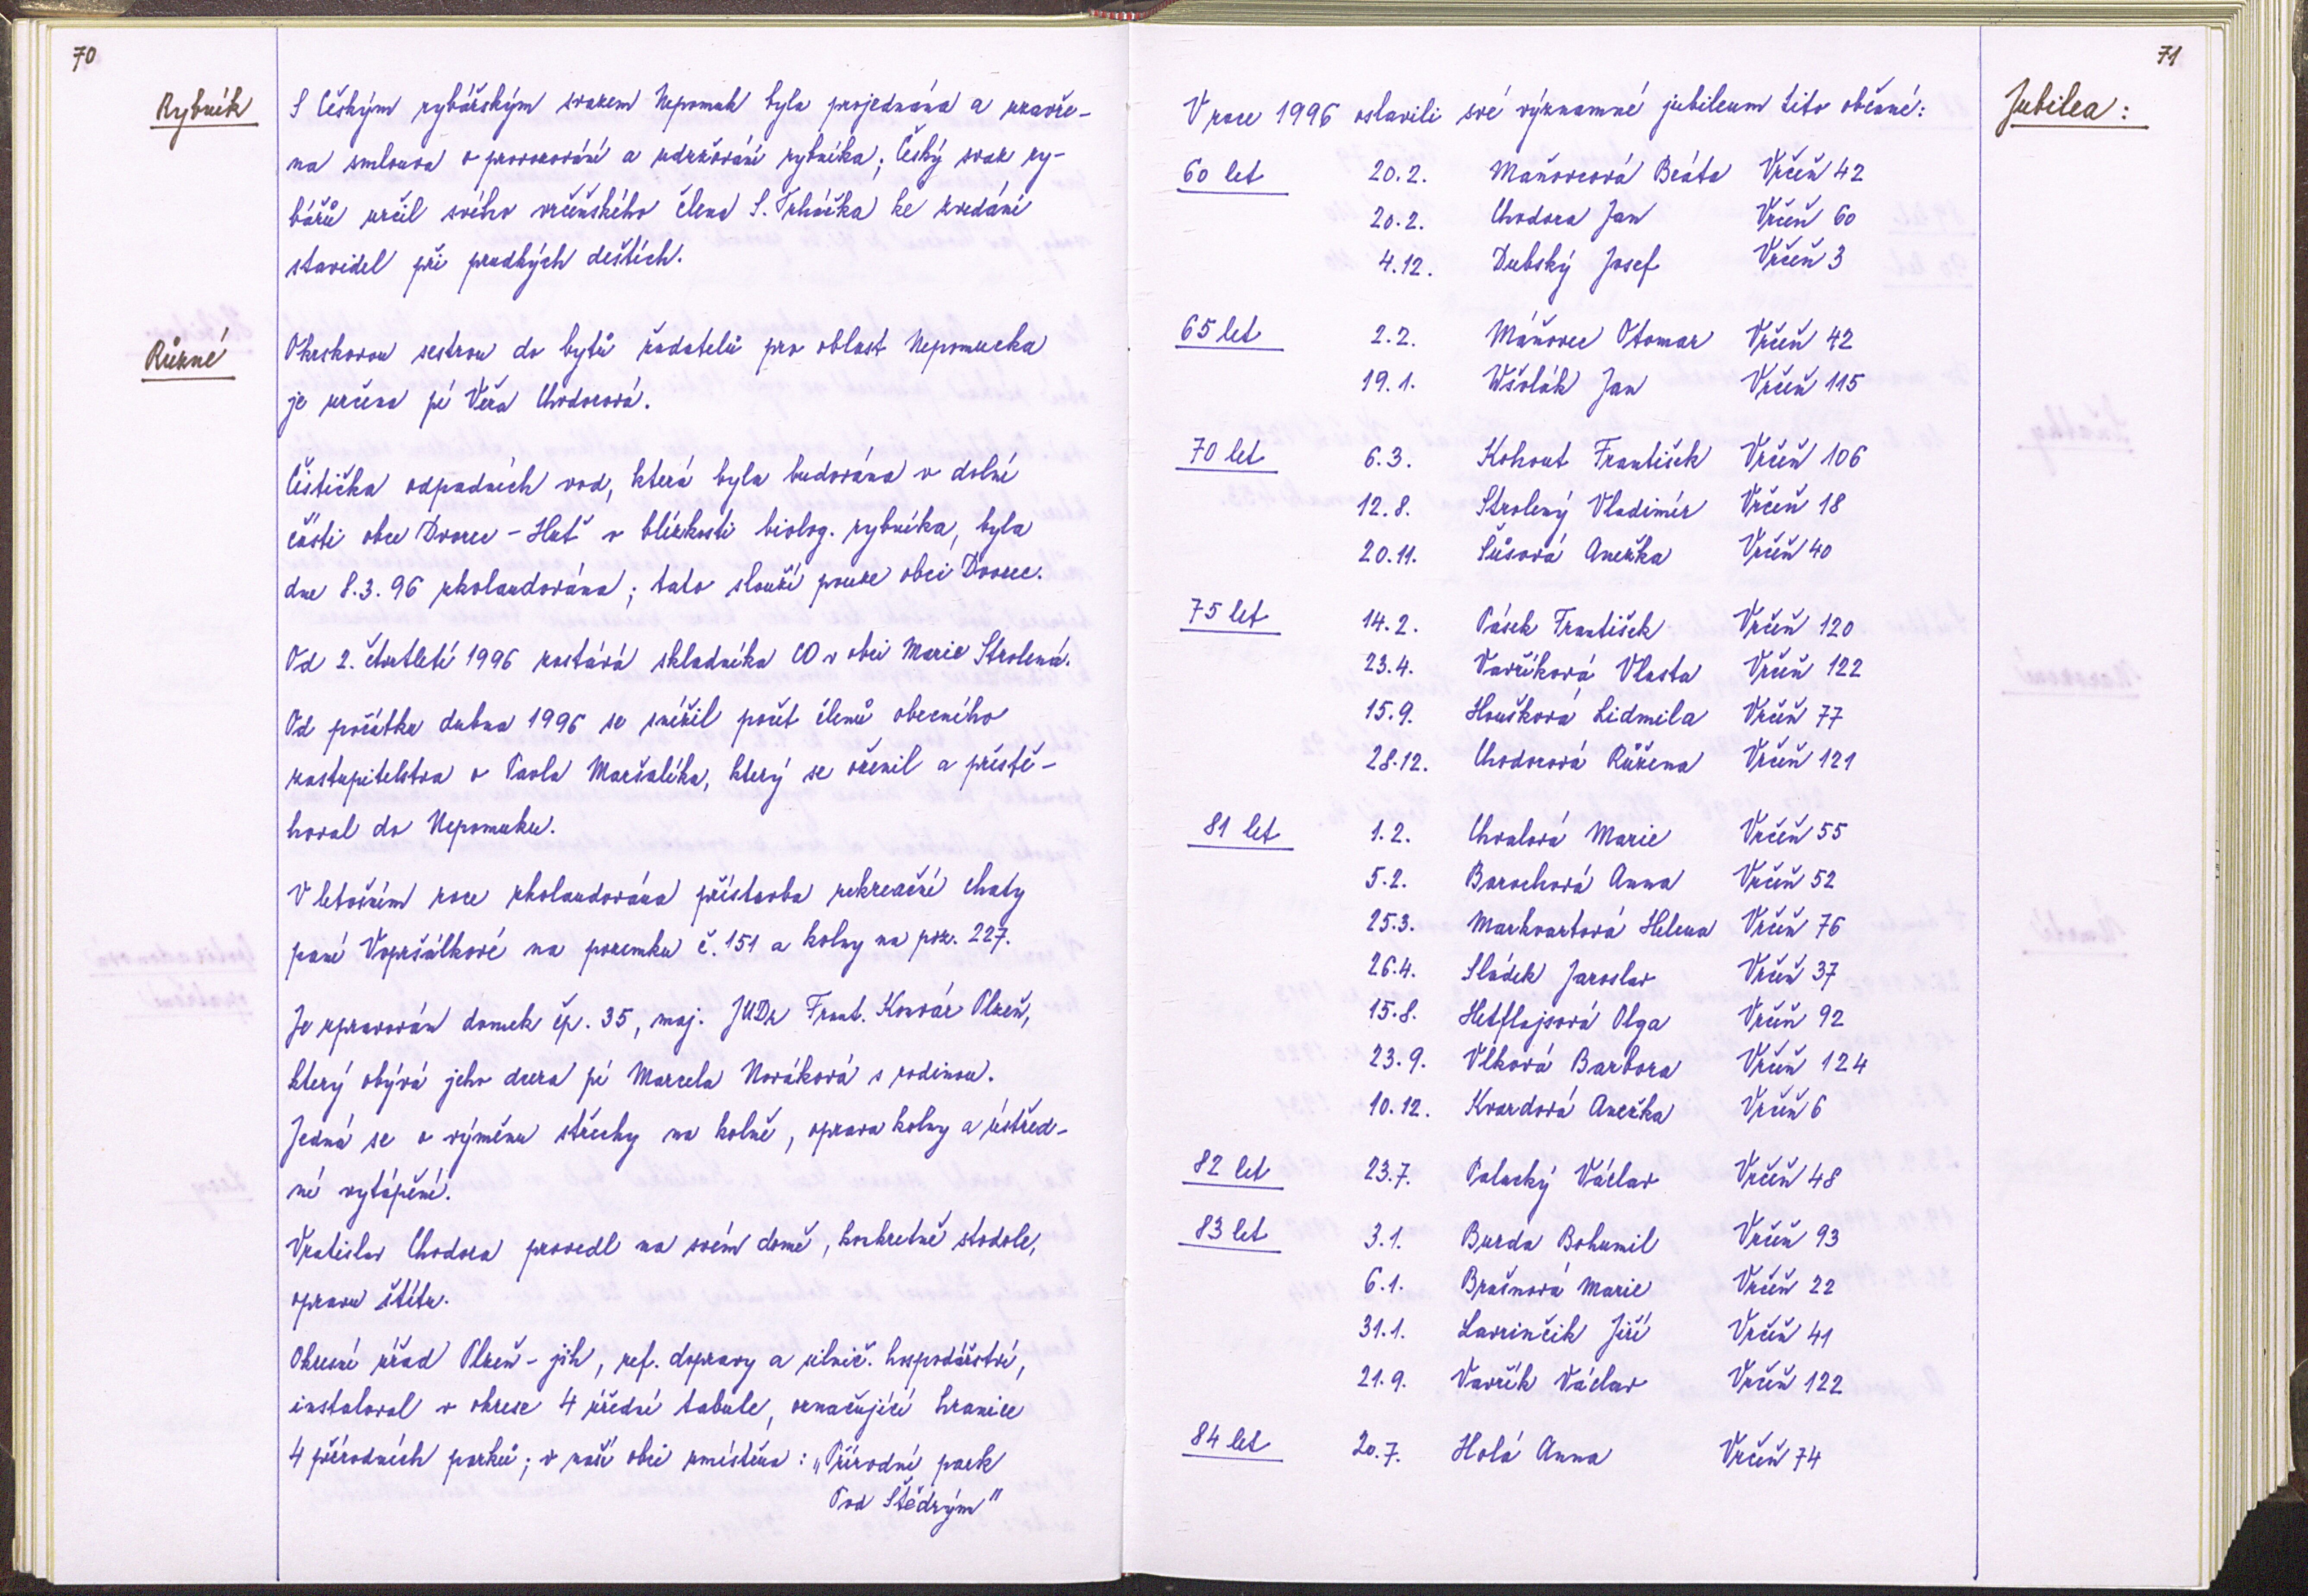 70
Rybník
S Českým rybářským svazem Nepomuk byla projednána a uzavře-
na smlouva o provozování a udržování rybníka; Český svaz ry-
bářů určil svého vrčeňského člena S. Trháčka ke zvedání
stavidel při prudkých deštích.
Různé
Okrskovou sestrou do bytů žadatelů pro oblast Nepomucka
je určena pí Věra Chodorová.
Čistička odpadních vod, která byla budována v dolní
části obce Dvorec - Huť v blízkosti biolog. rybníka, byla
dne 8.3.96 zkolaudována; tato slouží pouze obci Dvorec.
Od 2. čtvrtletí 1996 zastává skladníka CO v obci Marie Strolená.
Od počátku dubna 1996 se snížil počet členů obecního
zastupitelstva o Pavla Maršalíka, který se oženil a přestě-
hoval do Nepomuku.
V letošním roce zkolaudována přístavba rekreační chaty
paní Vopršálkové na pozemku č. 151 a kolny na poz. 227.
Je upravován domek čp. 35, maj. JUDr Frant. Kovář Plzeň,
který obývá jeho dcera pí Marcela Nováková s rodinou.
Jedná se o výměnu střechy na kolně, oprava kolny a ústřed-
ní vytápění.
Vratislav Chodora provedl na svém domě, konkretně stodole,
opravu štítu.
Okresní úřad Plzeň - jih, ref. dopravy a silnič. hospodářství,
instaloval v okrese 4 úřední tabule, označující hranice
4 přírodních parků; v naší obci umístěna: „Přírodní park
Pod Štědrým"
71
Jubilea:
V roce 1996 oslavili své významné jubileum tito občané:
60 let 20.2. Maňovcová Beáta Vrčeň 42
20.2. Chodora Jan Vrčeň 60
4.12. Dubský Josef Vrčeň 3
65 let 2.2. Máňovec Otomar Vrčeň 42
19.1. Wšolák Jan Vrčeň 115
70 let 6.3. Kohout František Vrčeň 106
12.8. Strolený Vladimír Vrčeň 18
20.11. Sůsová Anežka Vrčeň 40
75 let 14.2. Pásek František Vrčeň 120
23.4. Vavříková Vlasta Vrčeň 122
15.9. Houšková Lidmila Vrčeň 77
28.12. Chodorová Růžena Vrčeň 121
81 let 1.2. Chvalová Marie Vrčeň 55
5.2. Barochová Anna Vrčeň 52
25.3. Markvartová Helena Vrčeň 76
26.4. Sládek Jaroslav Vrčeň 37
15.8. Hetflajsová Olga Vrčeň 92
23.9. Vlková Barbora Vrčeň 124
10.12. Kvardová Anežka Vrčeň 6
82 let 23.7. Palacký Václav Vrčeň 48
83 let 3.1. Burda Bohumil Vrčeň 93
6.1. Brašnová Marie Vrčeň 22
31.1. Lavrinčik Jiří Vrčeň 41
21.9. Vavřík Václav Vrčeň 122
84 let 20.7. Holá Anna Vrčeň 74